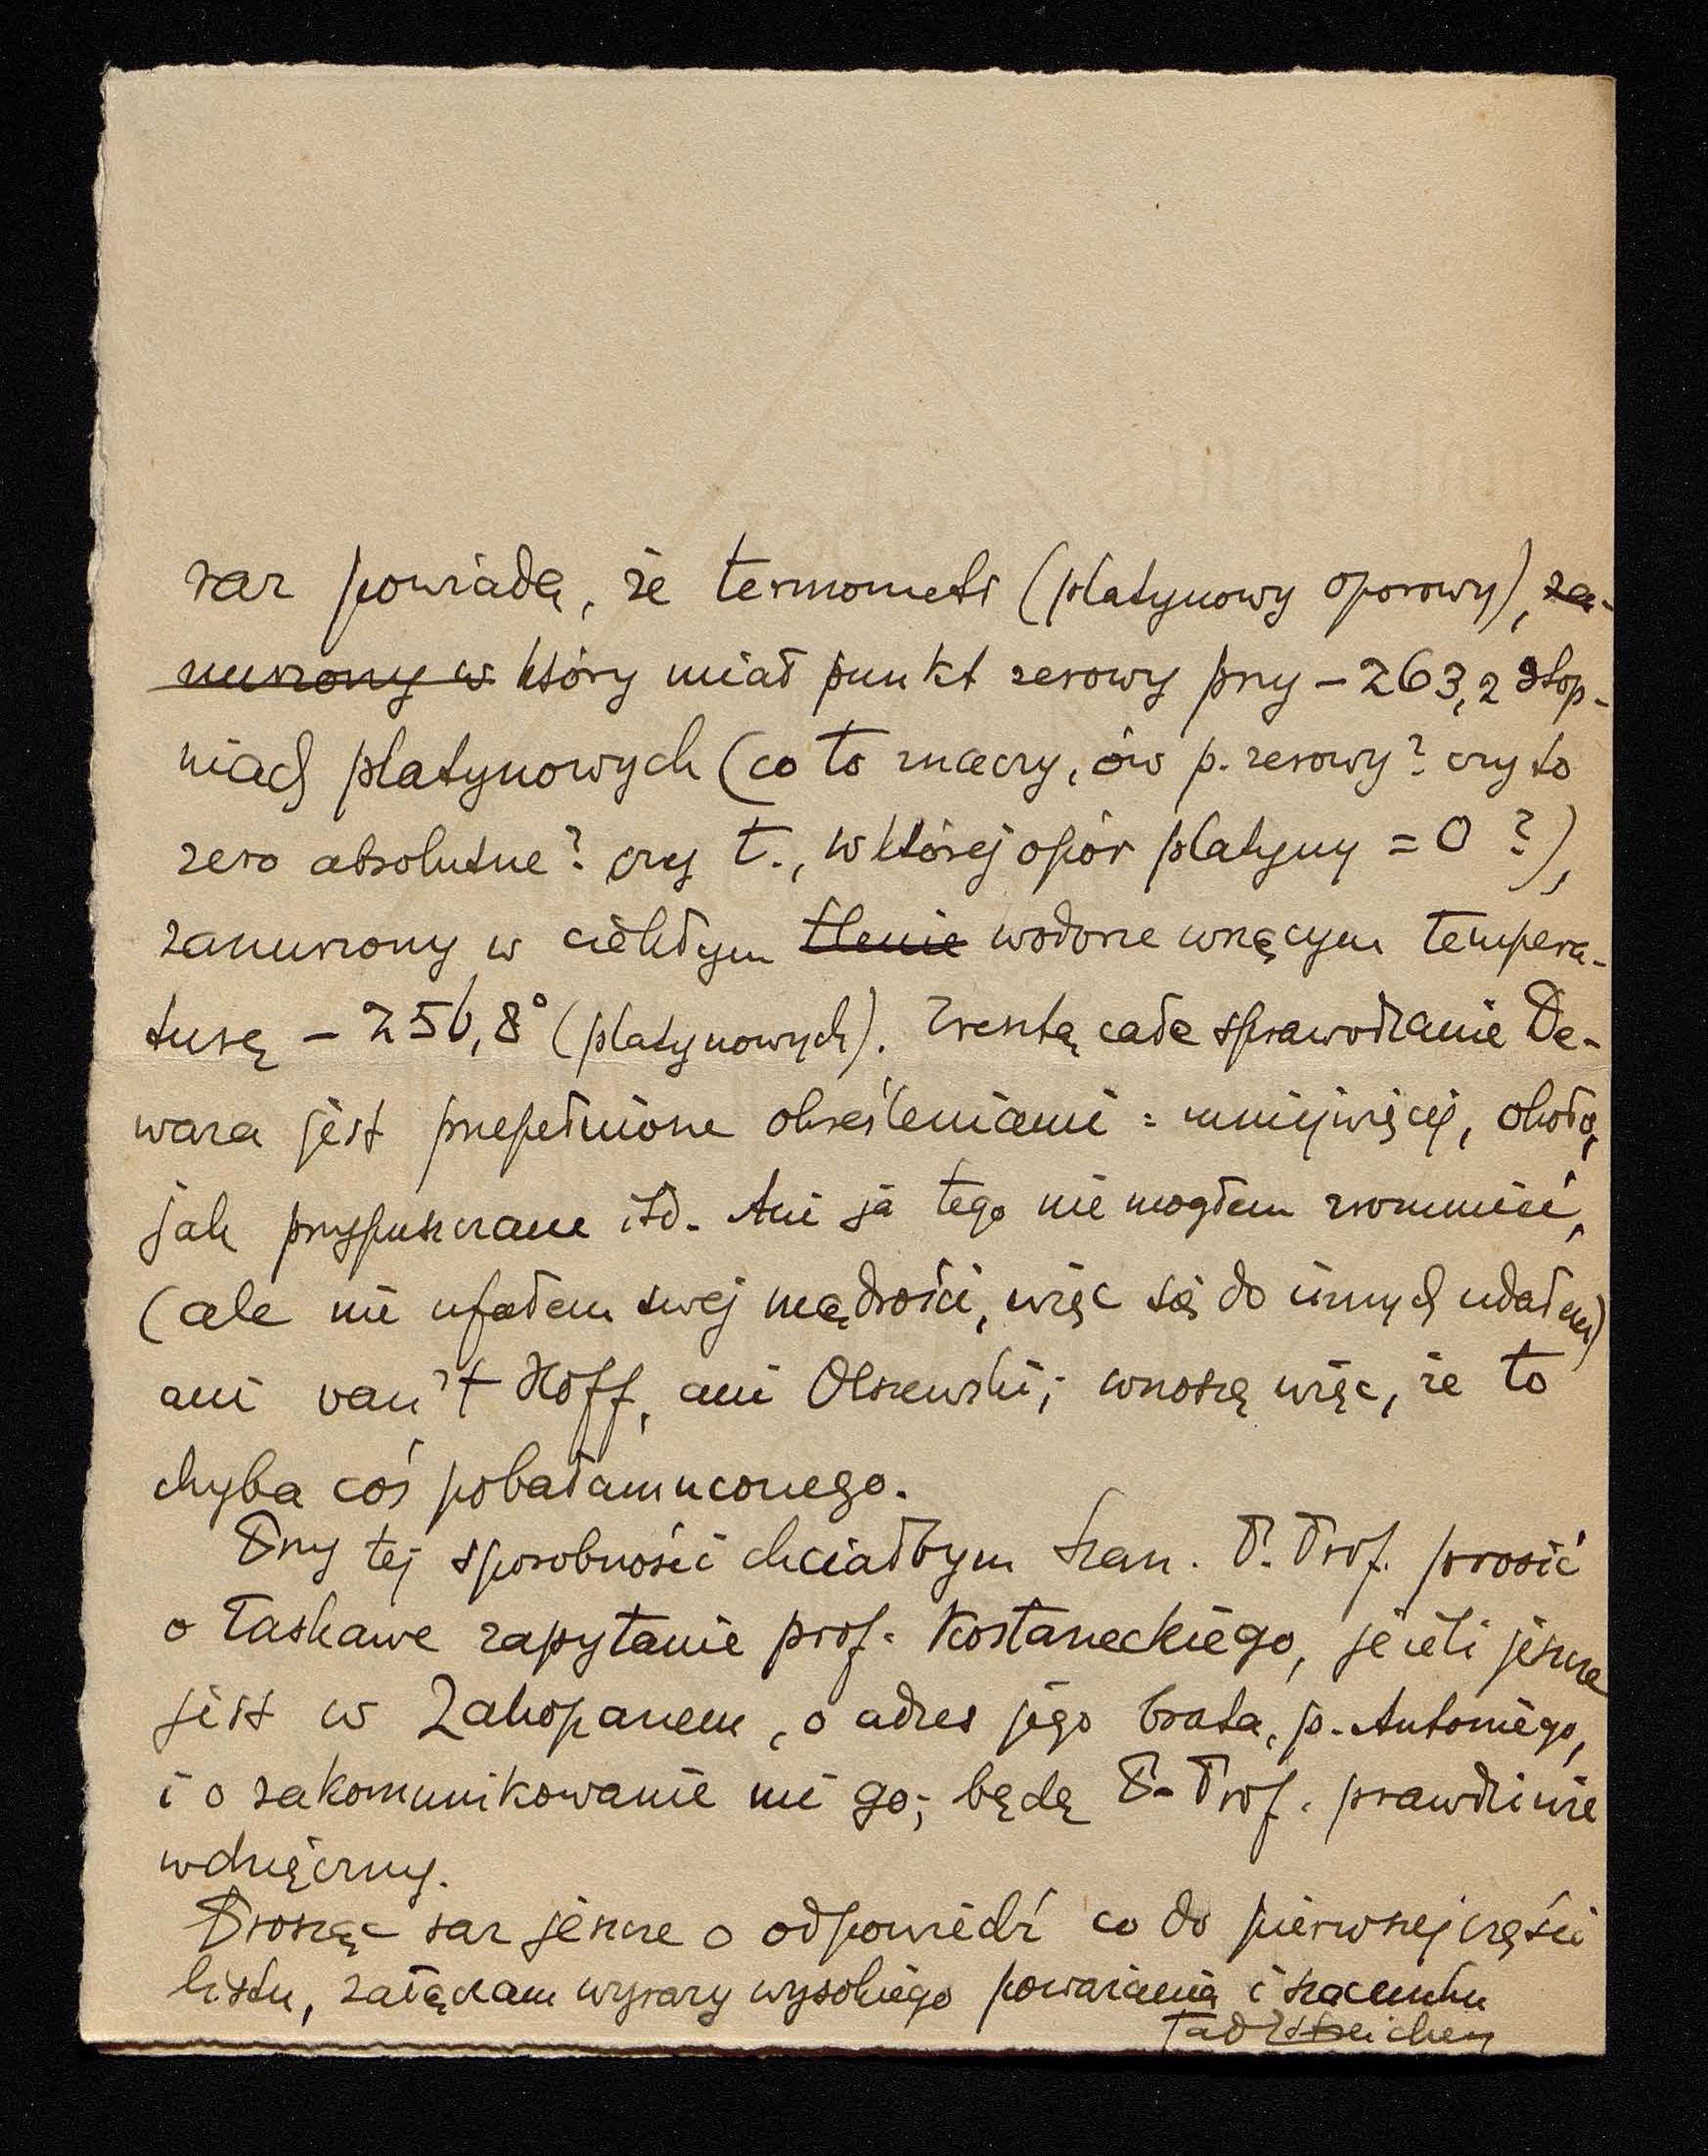 raz powiada, że termometr (platynowy oporowy), za-
nurzony w który miał punkt zerowy przy – 263,2 stop-
niach platynowych (co to znaczy, ów p. zerowy? czy to
zero absolutne? czy t., w której opór platyny = 0 ?),
zanurzony w ciekłym tlenie wodorze wrzącym tempera-
turę – 256,8° (platynowych). Zresztą całe sprawozdanie De-
wara jest przepełnione określeniami: mniejwięcej, około,
jak przypuszczam itd. Ani ja tego nie mogłem zrozumieć,
(ale nie ufałem swej mądrości, więc się do innych udałem)
ani van't Hoff, ani Olszewski; wnoszę więc, że to
chyba coś pobałamuconego.
Przy tej sposobności chciałbym Szan. P. Prof. prosić
o łaskawe zapytanie prof. Kostaneckiego, jeżeli jeszcze
jest w Zakopanem, o adres jego brata, p. Antoniego,
i o zakomunikowanie mi go; będę P. Prof. prawdziwie
wdzięczny.
Prosząc raz jeszcze o odpowiedź co do pierwszej części
listu, załączam wyrazy wysokiego poważania i szacunku
Tad Estreicher